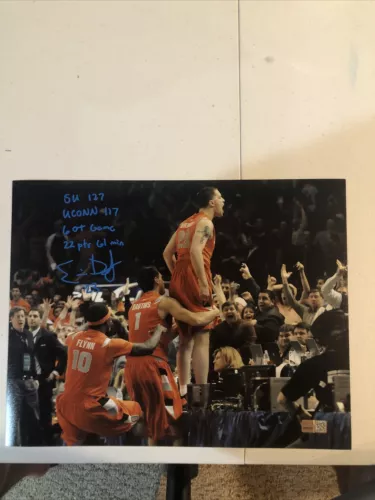 SU 127
UCONN 117
6 OT Game
22 pts 61 min
FLYNN
10
1